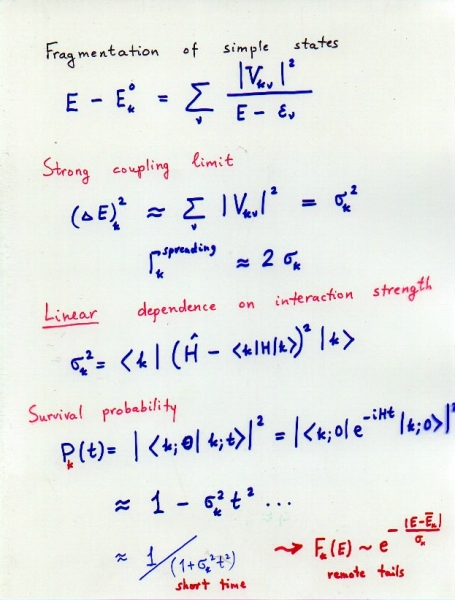 Fragmentation of simple states
E - E_k^0 = Σ_ν |V_kν|² / (E - ε_ν)
Strong coupling limit
(ΔE)_k² ≈ Σ_ν |V_kν|² = σ_k²
Γ_k^spreading ≈ 2 σ_k
Linear dependence on interaction strength
σ_k² = <k| (Ĥ - <k|H|k>)² |k>
Survival probability
P_k(t) = |<k;0|k;t>|² = |<k;0|e^{-iHt}|k;0>|²
≈ 1 - σ_k² t² ...
≈ 1/(1+σ_k² t²) → F_k(E) ~ e^{-|E-Ē_k|/σ_k}
short time remote tails